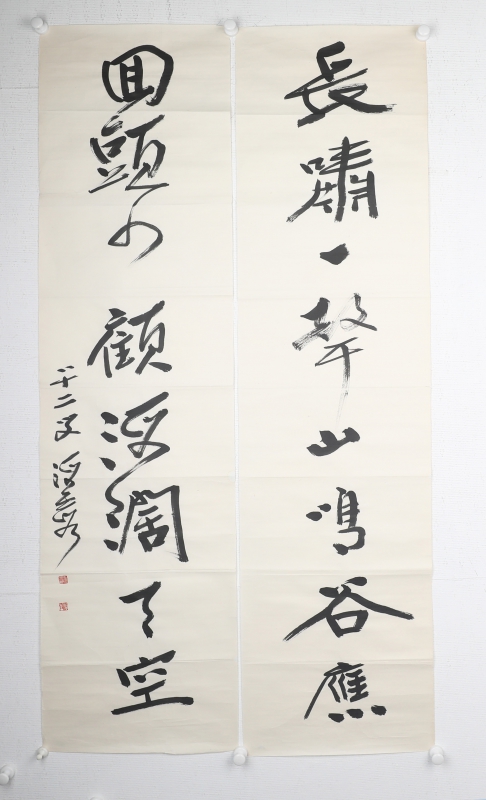 長嘯一聲山鳴谷應
回頭少顧海闊天空